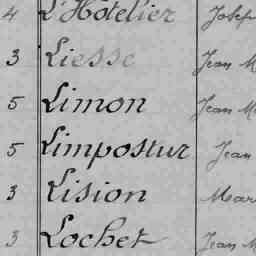 4 L'Hôtelier Josep
3 Liesse Jean M
5 Limon Jean M
5 Limpostur Jean
3 Lision Mar
3 Lochet Jean M